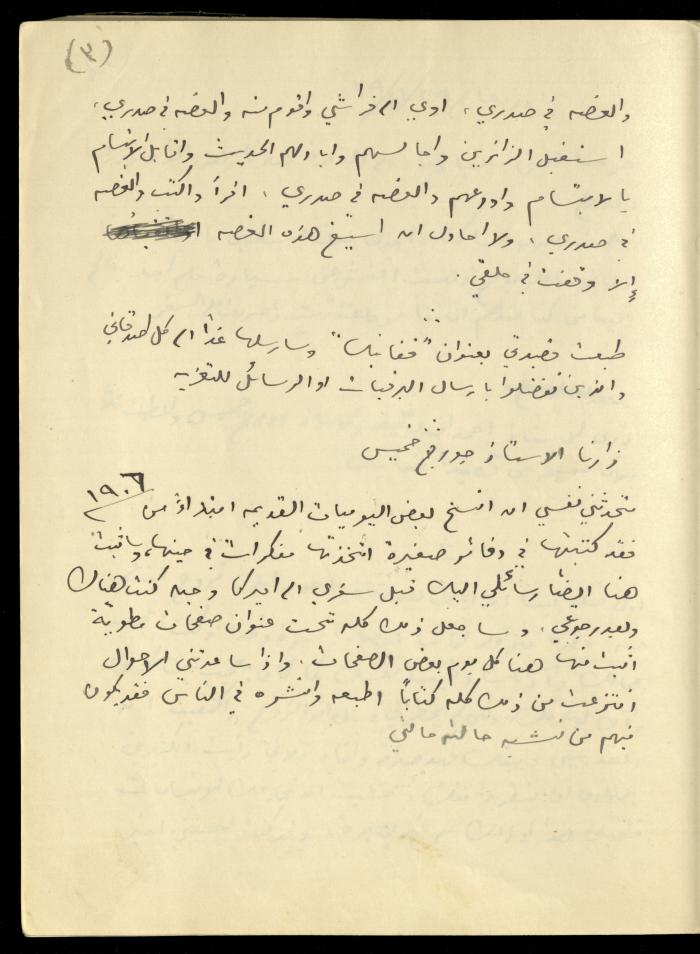 (٣)
والغصه في صدري، اوي الى فراشي واقوم منه والغصه في صدري،
استقبل الزائرين واجالسهم وابادلهم الحديث واقابل الابتسام
بالابتسام واودعهم والغصه في صدري، اقرأ واكتب والغصه
في صدري، ولا احاول ان اسيغ هذه الغصه
إلا وقفت في حلقي.
طبعت قصيدتي بعنوان "قفا نبك" وسارسلها غداً الى كل اصدقائي
والذين تفضلوا بارسال البرقيات او الرسائل للتعزيه
زارنا الاستاذ جورج خميس
تحدثني نفسي ان انسخ بعض اليوميات القديمه ابتداءً من ١٩٠٦
فقد كتبتها في دفاتر صغيرة اتخذتها مفكرات في حينها، واثبت
هنا ايضاً رسائلي اليك قبل سفري الى اميركا وحين كنت هناك
وبعد رجوعي، وساجعل ذلك كله تحت عنوان صفحات مطويّة
اثبت منها هنا كل يوم بعض الصفحات، واذا ساعدتني الاحوال
انتزعت من ذلك كله كتاباً اطبعه وانشره في الناس فقد يكون
فيهم من تشبه حالته حالتي